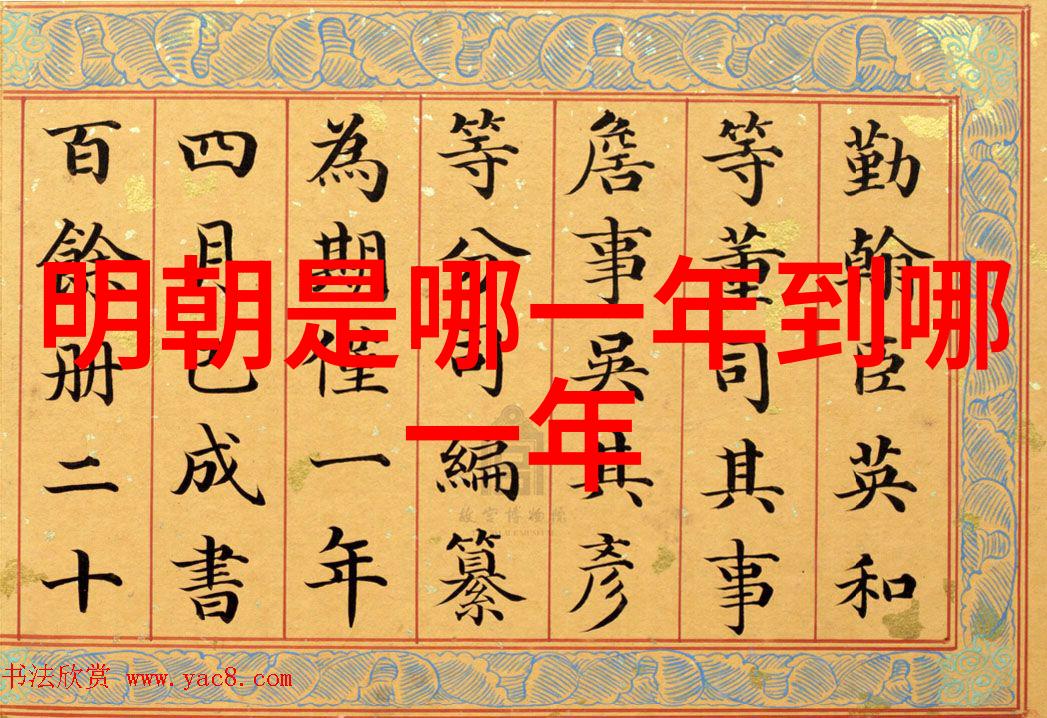 明朝是哪一年到哪
一年
勤翰臣英和
等董司其事
詹事吳其彥
等分司編纂
為期僅一年
四月已成書
百餘册二十
故宫博物院
书法欣赏 www.yac8.com